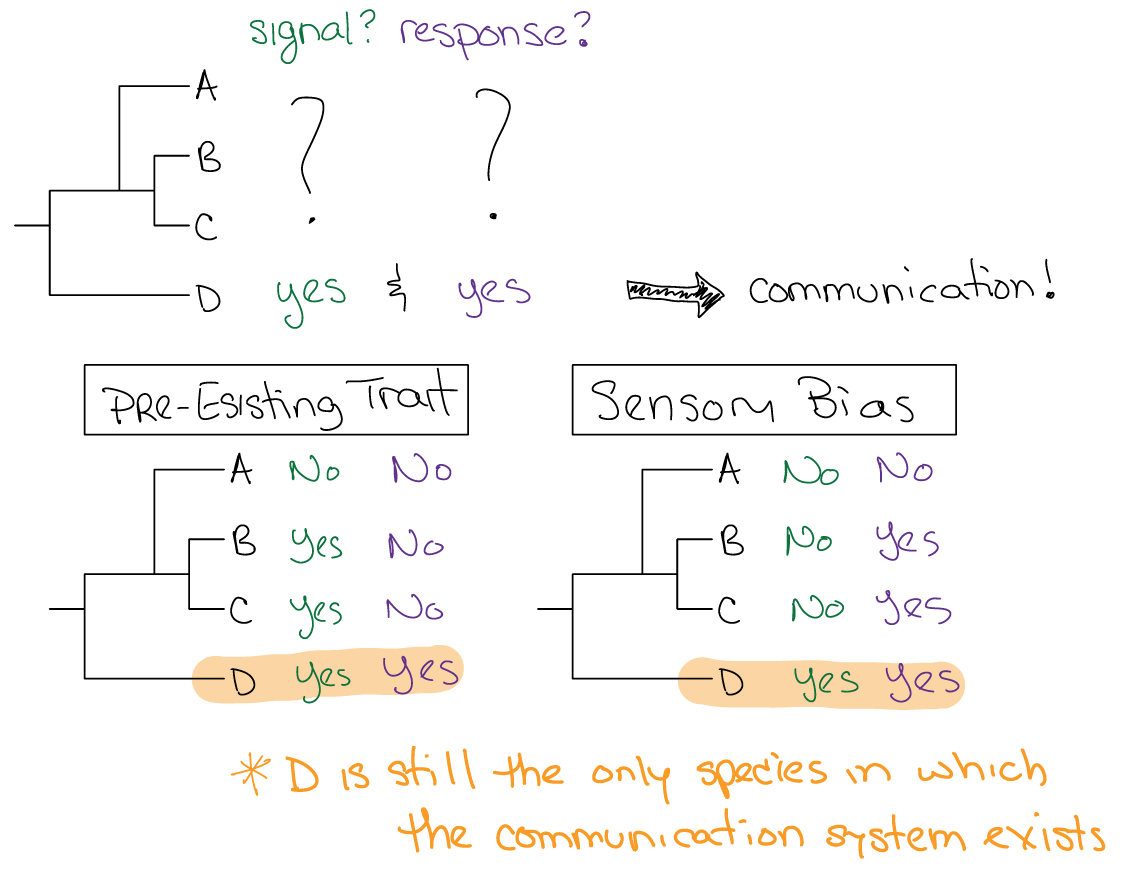 signal? response?
A
B
C
? ?
D yes & yes communication!
Pre-Esisting Trait
A No No
B Yes No
C Yes No
D Yes Yes
Sensory Bias
A No No
B No Yes
C No Yes
D Yes Yes
* D is still the only species in which
the communication system exists